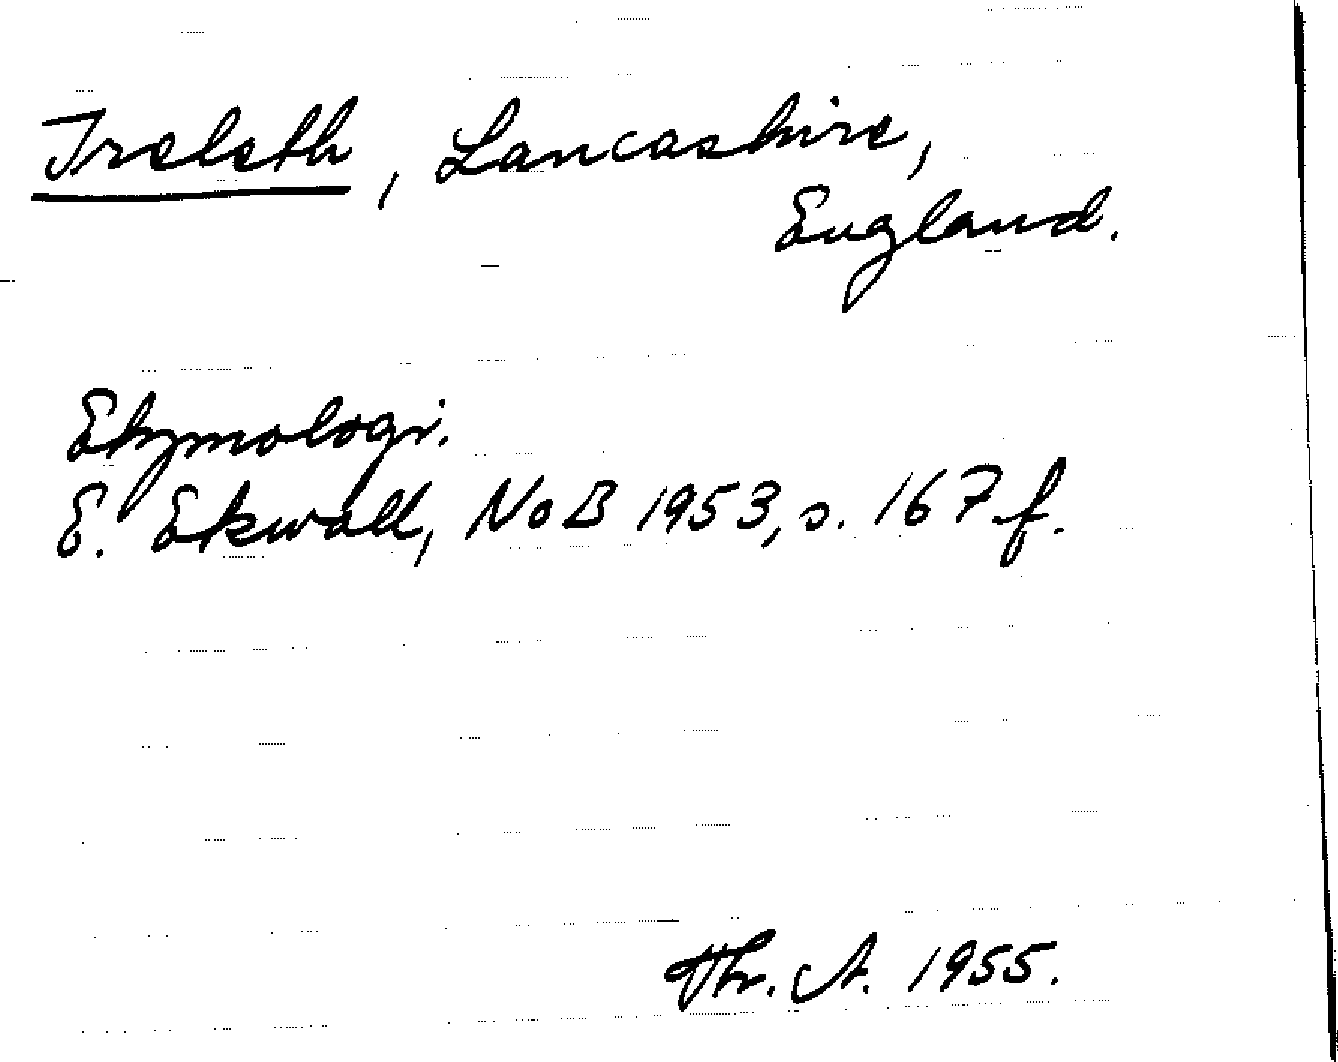 Ireleth, Lancashire,
England.
Etymologi.
E. Ekwall, NoB 1953, s. 167 f.
Thr. A. 1955.